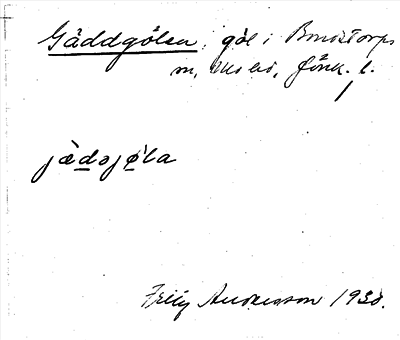 Gäddgölen, göl i Bondstorps
sn, Mo hd, Jönk. l.
jädəjøla
Fritz Andersson 1930.